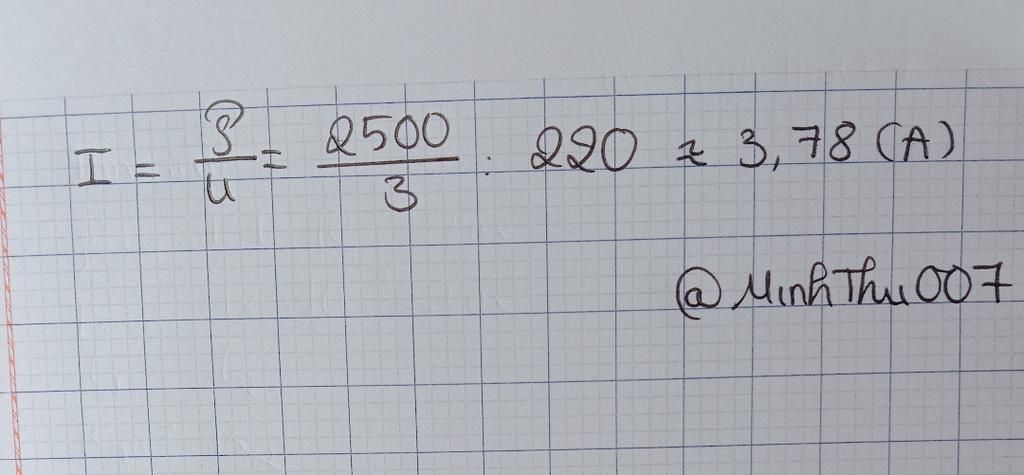 I = P/U = 2500/3 : 220 ≈ 3,78 (A)
@MinhThu007